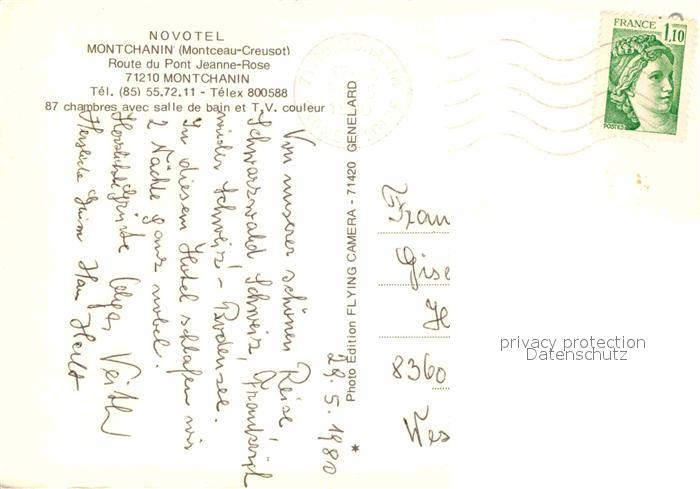 NOVOTEL
MONTCHANIN (Montceau-Creusot)
Route du Pont Jeanne-Rose
71210 MONTCHANIN
Tél. (85) 55.72.11 - Télex 800588
87 chambres avec salle de bain et T.V. couleur
FRANCE
1,10
POSTES
29.5.1980
Von unserer schönen Reise,
Schwarzwald, Schweiz, Frankreich
wieder Schweiz - Bodensee.
In diesem Hotel schlafen wir
2 Nächte ganz nobel.
Herzlichste Grüße Veith
Herzliche Hans
Photo Edition FLYING CAMERA - 71420 GENELARD
Frau
Gise
H
8360
Wes
privacy protection
Datenschutz